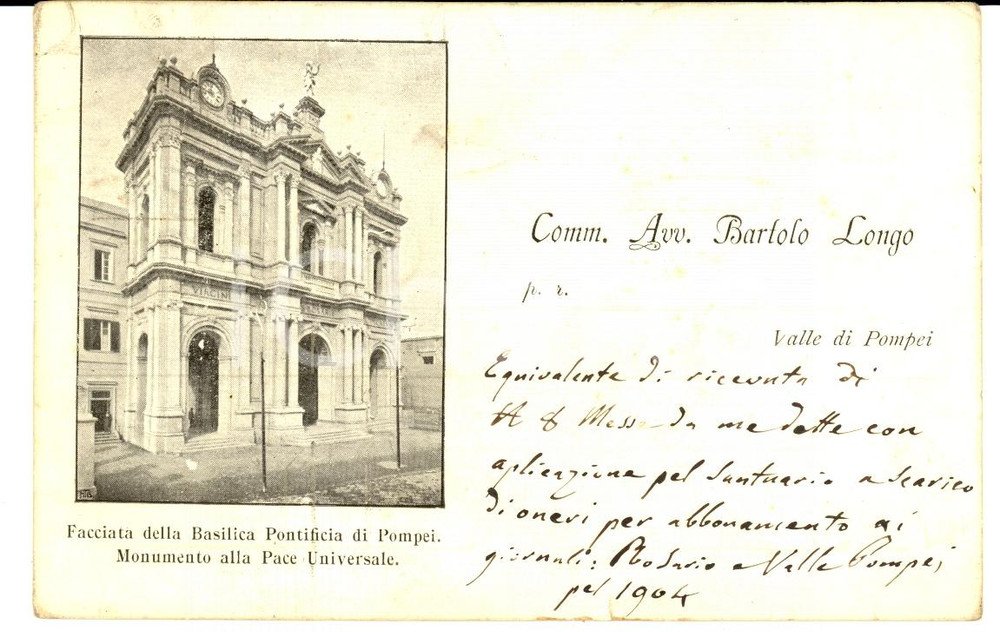 VIRGINI
Facciata della Basilica Pontificia di Pompei.
Monumento alla Pace Universale.
Comm. Avv. Bartolo Longo
p. r.
Valle di Pompei
Equivalente di ricevuta di
Messe da me dette con
aplicazione pel Santuario a scarico
di oneri per abbonamento ai
giornali: Rosario e Valle Pompei
pel 1904